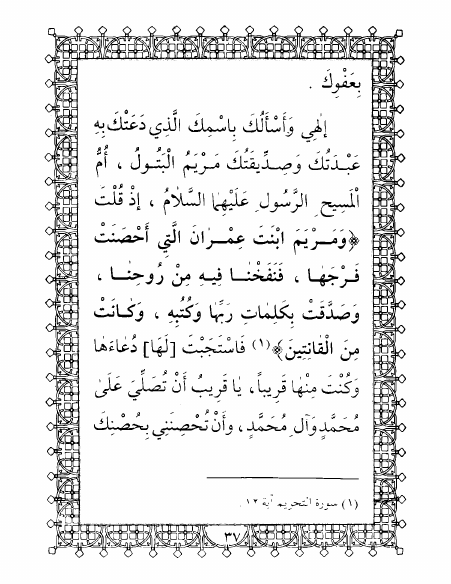 بِعَفْوِكَ .
إِلٰهِي وَأَسْأَلُكَ بِاسْمِكَ الَّذِي دَعَتْكَ بِهِ
عَبْدَتُكَ وَصِدِّيقَتُكَ مَرْيَمُ الْبَتُولُ ، أُمُّ
الْمَسِيحِ الرَّسُولِ عَلَيْهِمَا السَّلَامُ ، إِذْ قُلْتَ
﴿وَمَرْيَمَ ابْنَتَ عِمْرَانَ الَّتِي أَحْصَنَتْ
فَرْجَهَا ، فَنَفَخْنَا فِيهِ مِنْ رُوحِنَا ،
وَصَدَّقَتْ بِكَلِمَاتِ رَبِّهَا وَكُتُبِهِ ، وَكَانَتْ
مِنَ الْقَانِتِينَ﴾(١) فَاسْتَجَبْتَ [لَهَا] دُعَاءَهَا
وَكُنْتَ مِنْهَا قَرِيباً، يَا قَرِيبُ أَنْ تُصَلِّيَ عَلَىٰ
مُحَمَّدٍ وَآلِ مُحَمَّدٍ، وَأَنْ تُحْصِنَنِي بِحُصْنِكَ
(١) سورة التحريم آية ١٢ .
٣٧